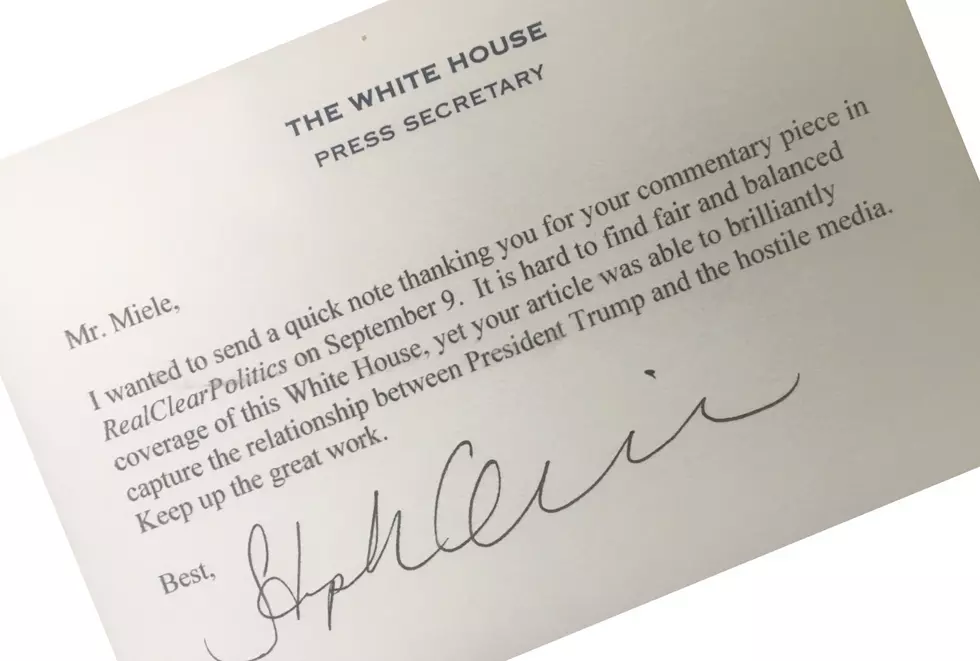 THE WHITE HOUSE
PRESS SECRETARY
Mr. Miele,
I wanted to send a quick note thanking you for your commentary piece in
RealClearPolitics on September 9. It is hard to find fair and balanced
coverage of this White House, yet your article was able to brilliantly
capture the relationship between President Trump and the hostile media.
Keep up the great work.
Best,